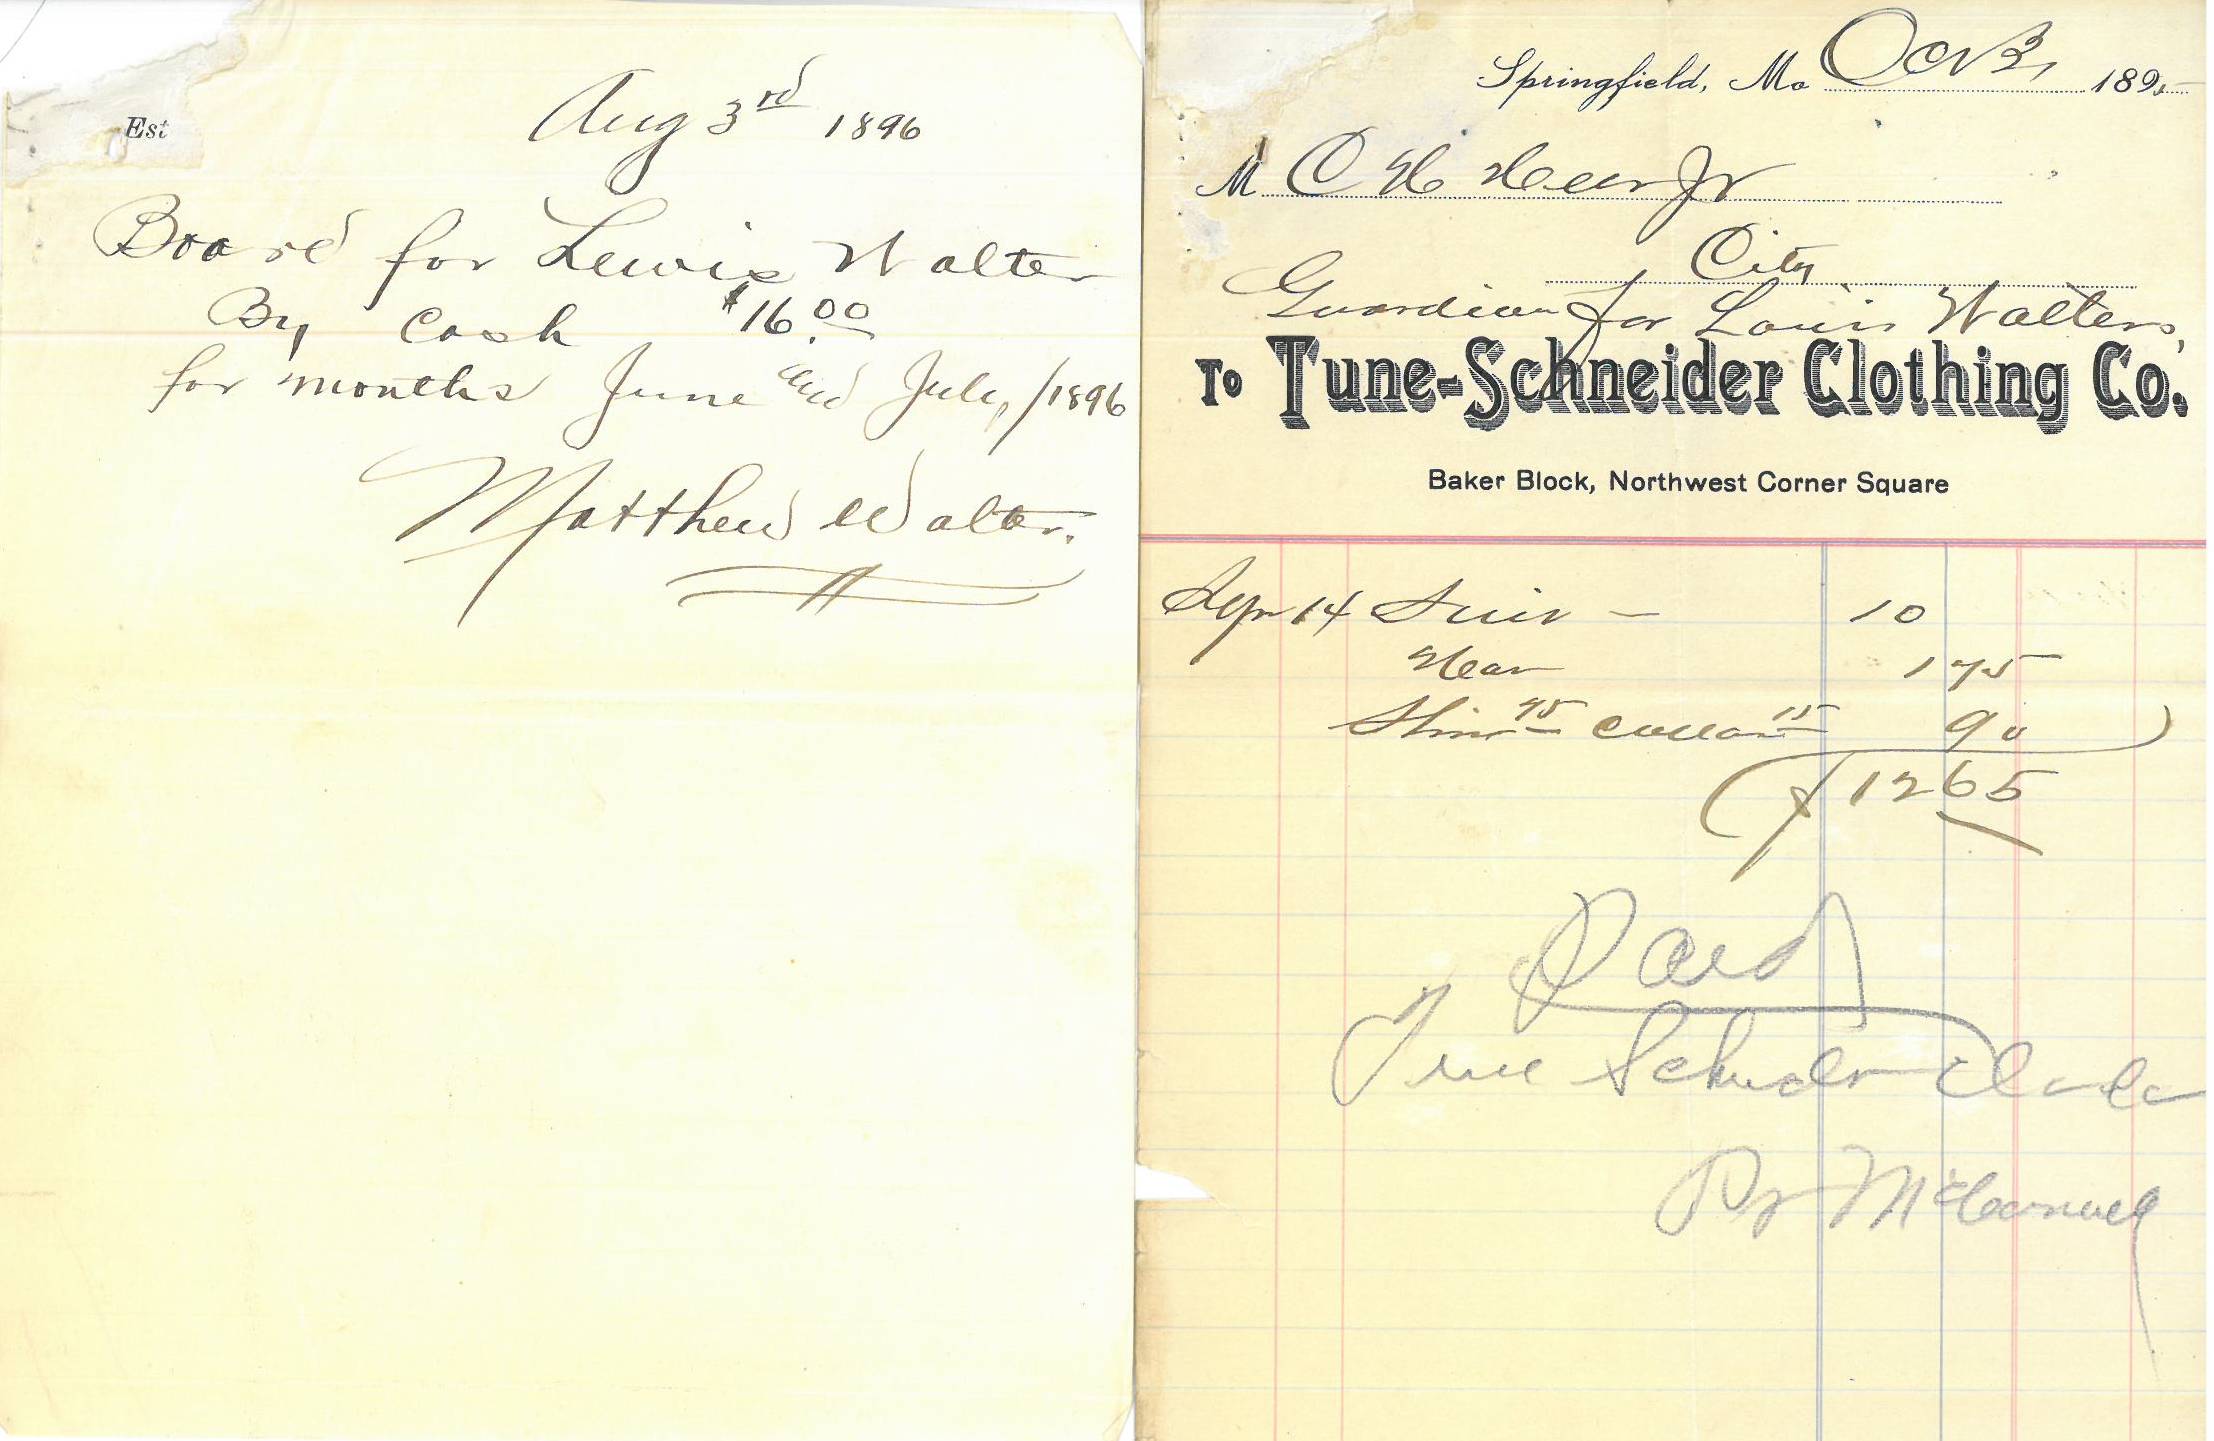 Est
Aug 3rd 1896
Board for Lewis Walter
By Cash $16.00
for months June and July/1896
Matthew Walter.
Springfield, Mo Oct 3, 189
M C H Heer Jr
City
Guardian for Louis Walters,
To Tune-Schneider Clothing Co.
Baker Block, Northwest Corner Square
Sep 14 Suit — 10
Hat 1 75
Shirt 75 Collar 15 90
$12 65
Paid
Tune Schneider Clo Co
By McConnell